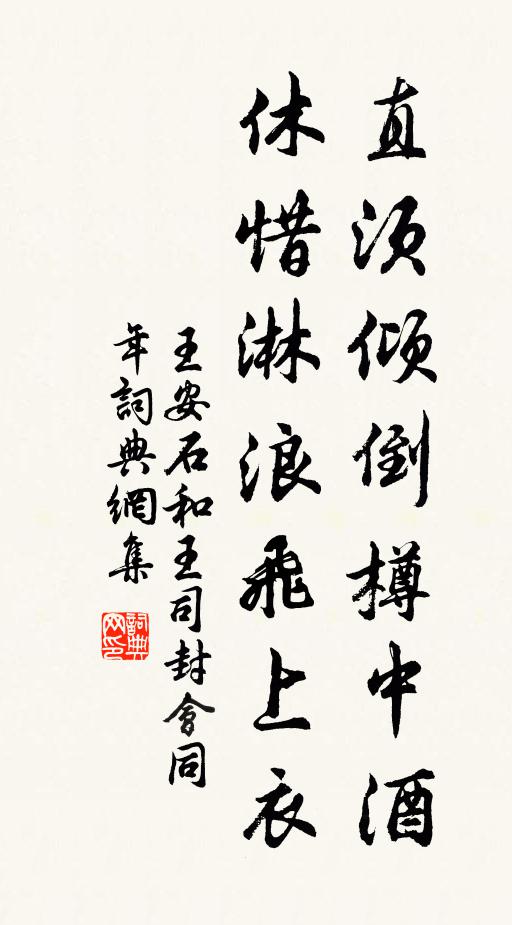 直須傾倒樽中酒
休惜淋浪飛上衣
王安石和王司封會同
年詞典網集
詞典
网印